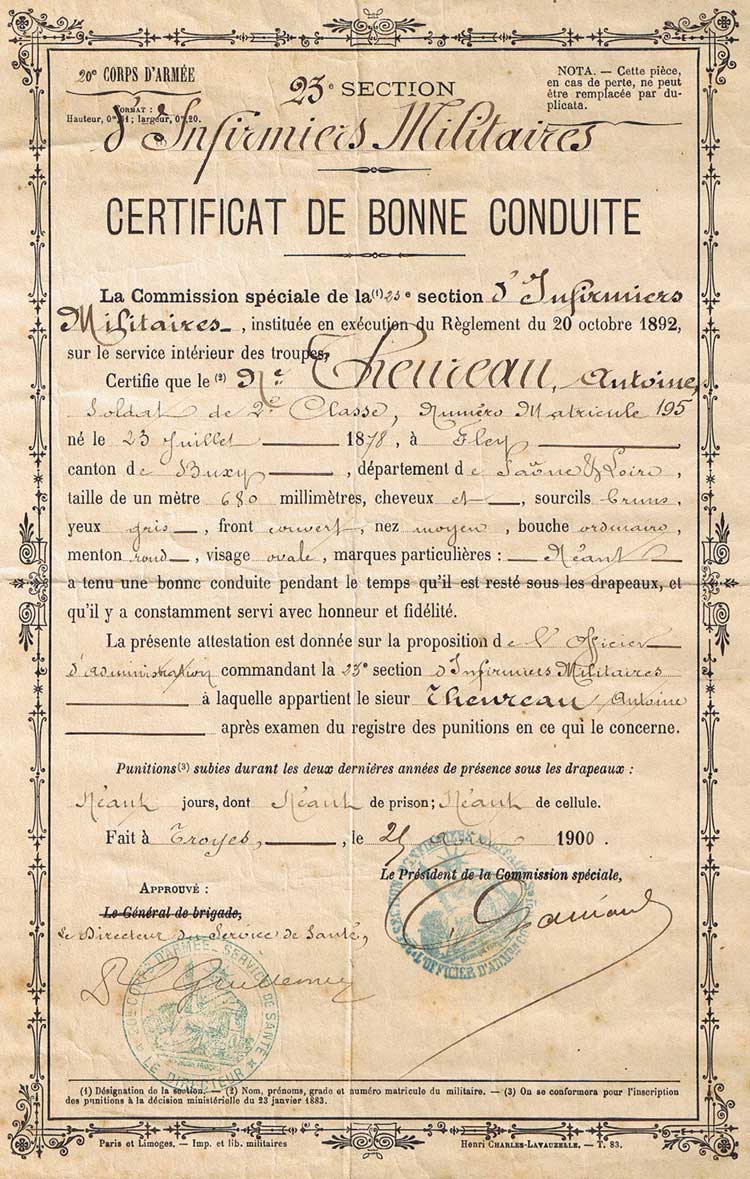 20e CORPS D'ARMÉE
FORMAT :
Hauteur, 0m,31; largeur, 0m,20.
23e SECTION
NOTA. — Cette pièce,
en cas de perte, ne peut
être remplacée par du-
plicata.
d'Infirmiers Militaires
CERTIFICAT DE BONNE CONDUITE
La Commission spéciale de la (1) 23e section d'Infirmiers
Militaires, instituée en exécution du Règlement du 20 octobre 1892,
sur le service intérieur des troupes,
Certifie que le (2) Theureau, Antoine,
Soldat de 2e Classe, Numéro Matricule 195
né le 23 Juillet 1878, à Fley
canton de Buxy, département de Saône & Loire,
taille de un mètre 680 millimètres, cheveux et, sourcils bruns,
yeux gris, front couvert, nez moyen, bouche ordinaire,
menton rond, visage ovale, marques particulières : Néant
a tenu une bonne conduite pendant le temps qu'il est resté sous les drapeaux, et
qu'il y a constamment servi avec honneur et fidélité.
La présente attestation est donnée sur la proposition de l'Officier
d'administration commandant la 23e section d'Infirmiers Militaires
à laquelle appartient le sieur Theureau Antoine
après examen du registre des punitions en ce qui le concerne.
Punitions (3) subies durant les deux dernières années de présence sous les drapeaux :
Néant jours, dont Néant de prison; Néant de cellule.
Fait à Troyes, le 25 1900.
Le Président de la Commission spéciale,
APPROUVÉ :
Le Général de brigade,
Le Directeur du Service de Santé,
20me CORPS D'ARMÉE - SERVICE DE SANTÉ
LE DIRECTEUR
L'OFFICIER D'ADMON
(1) Désignation de la section. — (2) Nom, prénoms, grade et numéro matricule du militaire. — (3) On se conformera pour l'inscription
des punitions à la décision ministérielle du 23 janvier 1883.
Paris et Limoges. — Imp. et lib. militaires
Henri CHARLES-LAVAUZELLE. — T. 83.